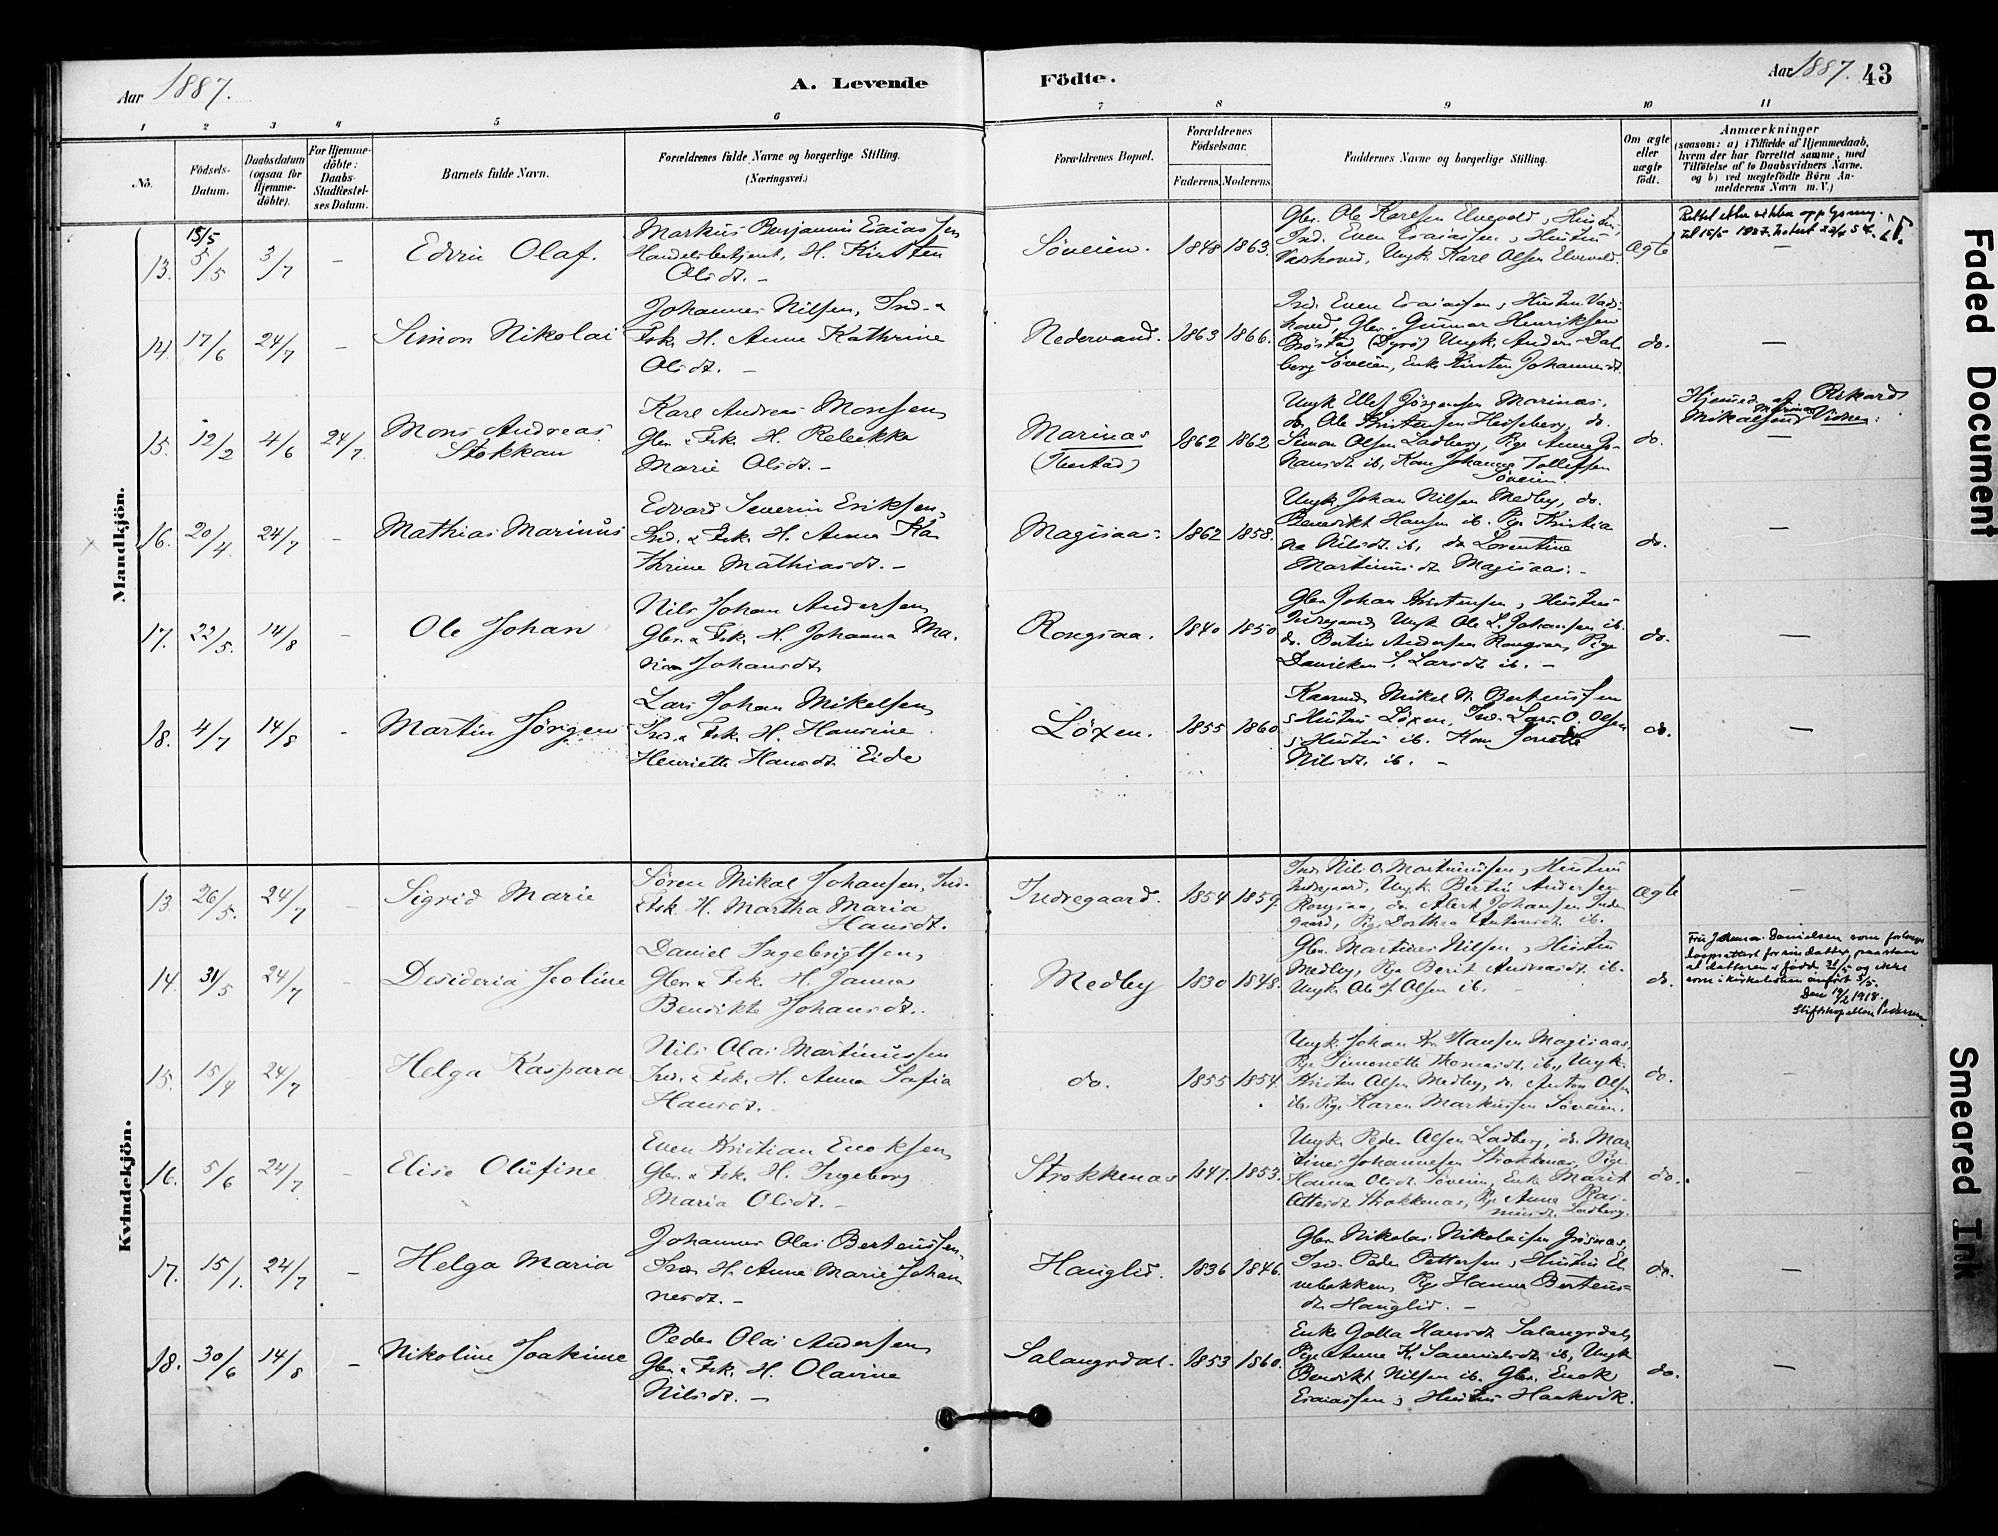 Aar 1887.
A. Levende
Födte.
Aar 1887.
43
1 2 3 4 5 6 7 8 9 10 11
No.
Födsels-Datum.
Daabsdatum (ogsaa for Hjemmedöbte).
For Hjemmedöbte: Daabs-Stadfæstelses Datum.
Barnets fulde Navn.
Forældrenes fulde Navne og borgerlige Stilling.
(Næringsvei.)
Forældrenes Bopæl.
Forældrenes Födselsaar.
Faderens. Moderens.
Faddernes Navne og borgerlige Stilling.
Om ægte eller uægte födt.
Anmærkninger
(saasom: a) i Tilfælde af Hjemmedaab,
hvem der har forrettet samme, med
Tilföielse af to Daabsvidners Navne.
og b) ved uægtefödte Börn An-
melderens Navn m. V.)
Mandkjön.
13. 15/5 5/5 3/7 – Edvin Olaf.
Markus Benjamin Esaiassen
Handelsbetjent, H. Kirsten
Olsdt. –
Søveien. 1848 1863.
Gbr. Ole Karlsen Elvevold, Hustru,
Ind. Even Esaiassen, Hustru
Vashoved, Ungk. Karl Olsen Elvevold.
Ægte
14. 17/6 24/7 – Simon Nikolai
Johannes Nilsen, Ind. &
Fsk. H. Anne Kathrine
Olsdt. –
Nedervand. 1863 1866.
Ind. Even Esaiassen, Hustru Vas-
hoved, Gbr. Gunnar Henriksen
Brøstad (Dyrø) Ungk. Anders Dal-
berg Søveien, Enke Kirsten Johannesdt.
do. –
15. 12/2 4/6 24/7. Mons Andreas
Stokkan
Karl Andreas Monssen,
Gbr. & Fsk. H. Rebekka
Marie Olsdt. –
Marinas
(Ibestad) 1862 1862
Ungk. Ellef Jørgensen Marinas,
do. Ole Kristensen Hesseberg, do.
Simon Olsen Ladberg, Pige Anne Jo-
hansdt. ib, Kone Johanna Tollefsen
Søveien.
do.
Hjemmed. af Rikard
Mikalsen Marinas Vidner:
–
16. 20/4. 24/7 – Mathias Marinus
Edvard Severin Eriksen,
Ind. & Fsk. H. Anna Ka-
thrine Mathiasdt. –
Magisaas. 1862 1858.
Ungk. Johan Nilsen Medby, do.
Benedikt Hansen ib. Pige Kristia
na Nilsdt. ib, do Lorentine
Martinusdt. Magisaas. –
do. –
17. 22/5. 14/8 – Ole Johan
Nils Johan Andersen,
Gbr. & Fsk. H. Johanna Ma-
rie Johansdt.
Rongsaa. 1840 1850
Gbr. Johan Kristensen, Hustru
Indregaard, Ungk. Ole L. Johansen ib.
do. Bertin Andersen Rongsaa, Pige
Danielsen S. Larsdt. ib. –
do. –
18. 4/7 14/8 – Martin Jørgen
Lars Johan Mikelsen,
Ind. & Fsk. H. Hansine
Henriette Hansdt. Eide
Løxen. 1855 1860
Kaarmd. Mikel N. Berteussen
& Hustru Løxen, Ind. Lars O. Olsen
& Hustru ib. Kone Jonetta
Nilsdt. ib. –
do. –
Kvindekjön.
13. 26/5. 24/7 – Sigrid Marie
Søren Mikal Johansen, Ind.
& Fsk. H. Martha Maria
Hansdt.
Indregaard. 1854 1859.
Ind. Nils O. Martinussen, Hustru
Indregaard, Ungk. Bertin Andersen
Rongsaa, do. Albert Johansen Indre-
gaard, Pige Dorthea Antonsdt. ib.
Ægte –
14. 31/5 24/7 – Desideria Jeoline
Daniel Ingebrigtsen,
Gbr. & Fsk. H. Janna
Bendikte Johansdt.
Medby 1830 1848.
Gbr. Martines Nilsen, Hustru
Medby, Pige Berit Andreasdt. ib.
Ungk. Ole J. Olsen ib. –
do.
Fru Johanna Danielsen som forlangte
daapsattest for sin datter paastaar
at datteren er född 31/5 og ikke
som i kirkeboken anfört 3/5.
Den 19/2 1918.
Stiftskapellan Pedersen
15. 15/4 24/7 – Helga Kaspara
Nils Olai Martinussen
Ind. & Fsk. H. Anna Sofia
Hansdt. –
do. 1855 1854.
Ungk. Johan Kr. Hansen Magisaas,
Pige Simonette Thomasdt. ib, Ungk.
Kristen Olsen Medby, do. Anton Olsen
ib. Pige Karen Markussen Søveien.
do. –
16. 5/6 24/7. – Elise Olufine
Even Kristian Enoksen,
Gbr. & Fsk. H. Ingeborg
Maria Olsdt. –
Strokkenas 1847. 1853.
Ungk. Peder Olsen Ladberg, do. Mar-
tines Johannesen Strokkenas, Pige
Hanna Olsdt. Søveien, Enke Marit
Ottesdt. Strokkenas, Pige Anna Ras-
musdt. Ladberg.
do. –
17. 15/1. 24/7 – Helga Maria
Johannes Olai Berteussen.
Ind. H. Anne Marie Johan
nesdt. –
Hauglid. 1836 1846.
Gbr. Nikolai Nikolaisen Grøsnas,
Ind. Peder Pettersen, Hustru El-
vebakken, Pige Hanna Berteus-
dt. Hauglid. –
do. –
18. 30/6 14/8 – Nikoline Joakime
Peder Olai Andersen,
Gbr. & Fsk. H. Olavine
Nilsdt. –
Salangsdal. 1853 1860.
Enke Golla Hansdt. Salangsdal,
Pige Anne K. Samuelsdt. ib, Ungk.
Bendikt Nilsen ib. Gbr. Enok
Esaiassen, Hustru Haakvik.
do. –
Faded Document
Smeared Ink